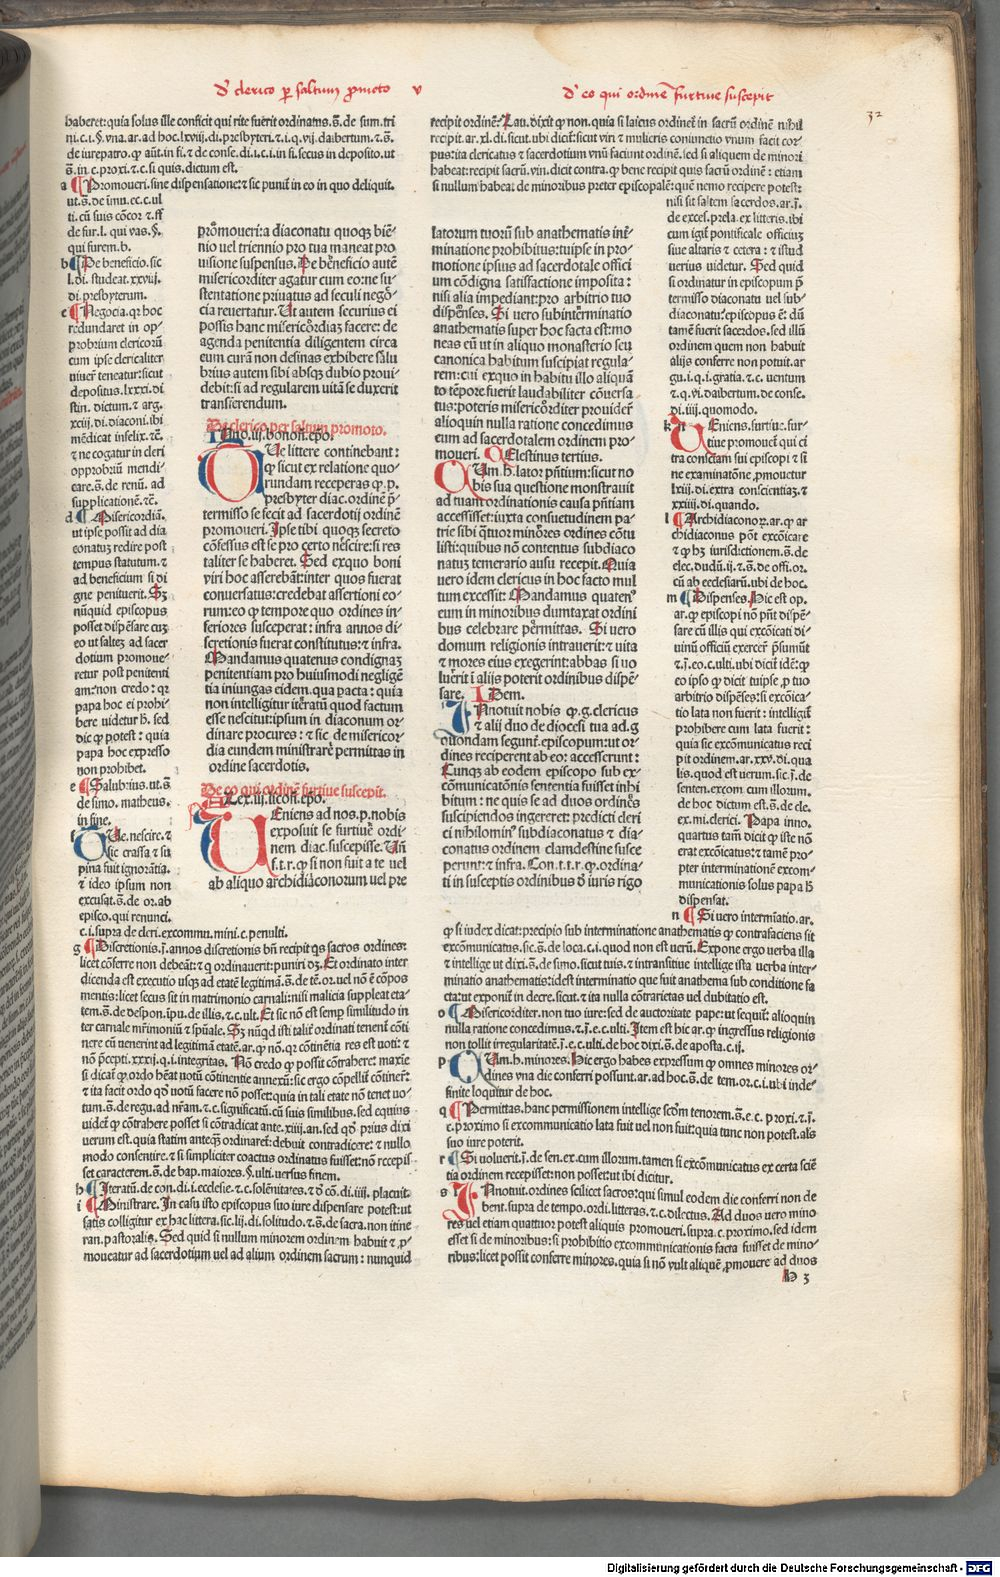 d' clerico p saltum pmoto v
d' eo qui ordinē furtiue suscepit
32
haberet: quia solus ille conficit qui rite fuerit ordinatus. s̄. de sum. tri
ni. c. i. §. vna. ar. ad hoc. lxviij. di. presbyteri. ⁊ i. q. vij. daibertum. ⁊ s̄.
de iurepatro. ꝙ aūt. in fi. ⁊ de conse. di. i. c. i. in fi. secus in deposito. ut
s̄. in c. proxi. ⁊ c. si quis. dictum est.
a Promoueri. sine dispensatione: ⁊ sic punit in eo in quo deliquit.
ti. cū suis cōcor ⁊ ff
de fur. l. qui vas. §.
qui furem. b.
b De beneficio. sic
l. di. studeat. xxviij.
di. presbyterum.
c Negocia. qr hoc
redundaret in op-
probrium clericorū
cum ipse clericaliter
viuer teneatur: sicut
depositus. lxxxi. di
stin. dictum. ⁊ arg.
xciij. di. diaconi. ibi
mēdicat infelix. ⁊c̄.
⁊ ne cogatur in cleri
opprobriū mendi-
care. s̄. de renū. ad
supplicationē. ⁊c̄.
d Misericordiā.
ut ipse possit ad dia
conatuꝫ redire post
tempus statutum. ⁊
ad beneficium si di
gne penituerit. Sꝫ
nūquid episcopus
posset dispēsare cuꝫ
eo ut salteꝫ ad sacer
dotium promoue-
retur post penitenti
am: non credo: qr
papa hoc ei prohi-
bere videtur h̄. sed
dic ꝙ potest: quia
papa hoc expresso
non prohibet.
e Salubrius. ut s̄.
de simo. matheus.
in fine.
f Ue. nescire. ⁊
sic crassa ⁊ su
pina fuit ignorātia.
⁊ ideo ipsum non
excusat. s̄. de or. ab
episco. qui renunci.
c. i. supra de cleri. excommu. mini. c. penulti.
promoueri: a diaconatu quoqꝫ biē-
nio vel triennio pro tua maneat pro
uisione suspensus. De beneficio autē
misericorditer agatur cum eo: ne su-
stentatione priuatus ad seculi nego-
cia reuertatur. Ut autem securius ei
possis hanc misericordiaꝫ facere: de
agenda penitentia diligentem circa
eum curā non desinas exhibere salu
brius autem sibi absqꝫ dubio proui-
debit: si ad regularem uitā se duxerit
transferendum.
De clerico per saltum promoto.
Inno. iij. bonoñ. epo.
Tue littere continebant:
ꝙ sicut ex relatione quo-
rundam receperas ꝙ. p.
presbyter diac. ordinē p̄-
termisso se fecit ad sacerdotij ordinē
promoueri. Ipse tibi quoqꝫ secreto
cōfessus est se pro certo nescire: si res
taliter se haberet. Sed exquo boni
viri hoc asserebāt: inter quos fuerat
conuersatus: credebat assertioni eo-
rum: eo ꝙ tempore quo ordines in-
feriores susceperat: infra annos di-
scretionis fuerat constitutus: ⁊ infra.
Mandamus quatenus condignaꝫ
penitentiam pro huiusmodi negligē
tia iniungas eidem. qua pacta: quia
non intelligitur iteratū quod factum
esse nescitur: ipsum in diaconum or-
dinare procures: ⁊ sic de misericor
dia eundem ministrare permittas in
ordine sacerdotis.
De eo qui ordinē furtiue suscepit.
Alex. iij. licoñ. epo.
Ueniens ad nos. p. nobis
exposuit se furtiue ordi-
nem diac. suscepisse. Uñ
f. t. r. ꝙ si non fuit a te vel
ab aliquo archidiaconorum vel pre
g Discretionis. j. annos discretionis bn̄ recipit qs sacros ordines:
licet cōferre non debeāt: ⁊ q ordinauerit: puniri dꝫ. Et ordinato inter
dicenda est executio usqꝫ ad etatē legitimā. s̄. de tē. or. vel nō ē cōpos
mentis: licet secus sit in matrimonio carnali: nisi malicia suppleat eta-
tem. s̄. de despon. ipu. de illis. ⁊ c. ult. Et sic nō est semp similitudo in
ter carnale mr̄imoniū ⁊ spūale. Sꝫ nūqd isti taliť ordinati tenent cōti
nere cū venerint ad legitimā etatē. ar. ꝙ nō. qr cōtinētia res est voti: ⁊
nō p̄cepti. xxxij. q. i. integritas. Nō credo ꝙ possit cōtrahere: maxīe
si dicat ꝙ. ordo heat uotū cōtinentie annexū: sic ergo cōpellit cōtinere:
⁊ ita facit ordo qd uotū facere nō posset: quia in tali etate nō tenet uo-
tum. s̄. de regu. ad nr̄am. ⁊ c. significatū. cū suis similibus. sed equius
videt ꝙ cōtrahere posset si cōtradicat ante. xiiij. an. sed qd prius dixi
uerum est. quia statim anteqꝫ ordinaret: debuit contradicere: ⁊ nullo
modo consentire. ⁊ si simpliciter coactus ordinatus fuisset: nō recepis-
set caracterem. s̄. de bap. maiores. §. ulti. versus finem.
h Iteratū. de con. di. i. ecclesie. ⁊ c. solēnitates. ⁊ d' cō. di. iiij. placuit.
i Ministrare. In casu isto episcopus suo iure dispensare potest: ut
satis colligitur ex hac littera. sic. lij. di. solitudo. ⁊ s̄. de sacra. non itine
ran. pastoralis. Sed quid si nullum minorem ordinem habuit ⁊ p̄-
moueatur ad sacerdotium vel ad alium ordinem sacrum: nunquid
recipit ordinē: Lau. dixit ꝙ non. quia si laicus ordinet in sacrū ordinē nihil
recipit. ar. xl. di. sicut. ubi dicit: sicut viri ⁊ mulieris coniunctio vnum facit cor-
pus: ita clericatus ⁊ sacerdotium vnū faciunt ordinē. sed si aliquem de minori
habeat: recipit sacrū. vin. dicit contra. ꝙ bene recipit quis sacrū ordinē: etiam
si nullum habeat de minoribus preter episcopalē: quē nemo recipere potest:
latorum tuorū sub anathematis intē
minatione prohibitus: tu ipse in pro-
motione ipsius ad sacerdotale offici
um cōdigna satisfactione imposita:
nisi alia impediant: pro arbitrio tuo
dispenses. Si vero sub interminatio
anathematis super hoc facta est: mo
neas eū ut in aliquo monasterio seu
canonica habitum suscipiat regula-
rem: cui exquo in habitu illo aliquā
to tēpore fuerit laudabiliter cōuersa
tus: poteris misericorditer prouidere
alioquin nulla ratione concedimus
eum ad sacerdotalem ordinem pro-
moueri. Celestinus tertius.
Cum. h. lator p̄ntium: sicut no
bis sua questione monstrauit
ad tuam ordinationis causa p̄ntiam
accessisset: iuxta consuetudinem pa-
trie sibi q̄tuor minores ordines cōtu
listi: quibus nō contentus subdiaco
natuꝫ temerario ausu recepit. Quia
vero idem clericus in hoc facto mul
tum excessit: Mandamus quatenꝰ
eum in minoribus dumtaxat ordini
bus celebrare permittas. Si vero
domum religionis intrauerit: ⁊ vita
⁊ mores eius exegerint: abbas si uo
luerit ī alijs poterit ordinibus dispē
sare. Idem.
Innotuit nobis ꝙ. g. clericus
⁊ alij duo de diocesi tua ad. g
quondam segunt. episcopum: ut or-
dines reciperent ab eo: accesserunt:
Cunqꝫ ab eodem episcopo sub ex-
cōmunicatōnis sententia fuisset inhi
bitum: ne quis se ad duos ordines
suscipiendos ingereret: predicti cleri
ci nihilominꝰ subdiaconatus ⁊ dia-
conatus ordinem clamdestine susce
perunt: ⁊ infra. Con. t. t. r. ꝙ. ordina-
ti in susceptis ordinibus d' iuris rigo
nisi sit saltem sacerdos. ar. j.
de exces. prela. ex litteris. ibi
cum igit pontificale officiuꝫ
siue altaris ⁊ cetera: ⁊ istud
verius videtur. Sed quid
si ordinatur in episcopum p̄
termisso diaconatu vel sub-
diaconatu: episcopus ē: dū
tamē fuerit sacerdos. sed illū
ordinem quem non habuit
alijs conferre non potuit. ar
gu. i. q. i. gratia. ⁊ c. uentum
⁊ q. vi. daibertum. de conse.
di. iiij. quomodo.
k Ueniens. furtiue. fur-
tiue promouet qui ci
tra conscīam sui episcopi ⁊ si
ne examinatōne p̄mouetur
lxiij. di. extra conscientiaꝫ. ⁊
xxiiij. di. quando.
l Archidiaconoꝝ. ar. ꝙ ar
chidiaconus pōt excōicare:
⁊ ꝙ hꝫ iurisdictionem. s̄. de
elec. dudū. ij. ⁊ s̄. de offi. or.
cū ab ecclesiarū. ubi de hoc.
m Dispenses. Hic est op.
ar. ꝙ episcopi nō pn̄t dispē-
sare cū illis qui excōicati di-
uinū officiū exercer p̄sumūt
⁊. j. eo. c. ulti. ubi dicit idē: ꝙ
eo ipso ꝙ dicit tu ipse. p tuo
arbitrio dispēses: si excōica-
tio lata non fuerit: intelligit
prohibere cum lata fuerit:
quia sic excōmunicatus reci
pit ordinem. ar. xxv. di. qua
lis. quod est uerum. sic. j. de
senten. excom. cum illorum.
de hoc dictum est. s̄. de cle.
ex. mi. clerici. Papa inno.
quartus tam̄ dicit ꝙ iste nō
erat excōicatus: ⁊ tamē pro-
pter interminationē excom-
municationis solus papa h̄
dispensat.
n Si uero interminatio. ar.
ꝙ si iudex dicat: precipio sub interminatione anathematis ꝙ contrafaciens sit
excōmunicatus. sic. s̄. de loca. c. i. quod non est uerū. Expone ergo uerba illa
⁊ intellige ut dixi. s̄. de simo. sicut tuis. ⁊ intransitiue intellige ista verba inter-
minatio anathematis: id est interminatio que fuit anathema sub conditione fa
cta: ut exponit in decre. sicut. ⁊ ita nulla cōtrarietas uel dubitatio est.
o Misericorditer. non tuo iure: sed de auctoritate pape: ut sequit: alioquin
nulla ratione concedimus. ⁊. j. e. c. ulti. Item est hic ar. ꝙ ingressus religionis
non tollit irregularitatē. j. e. c. ulti. de hoc dixi. s̄. de aposta. c. ij.
p Cum. h. minores. Hic ergo habes expressum ꝙ omnes minores or-
dines vna die conferri possunt. ar. ad hoc. s̄. de tem. or. c. i. ubi inde-
finite loquitur de hoc.
q Permittas. hanc permissionem intellige scdm tenorem. s̄. e. c. proxi. ⁊. j.
c. proximo si excommunicatio lata fuit uel non fuit: quia tunc non potest. als
suo iure poterit.
r Si voluerit. j. de sen. ex. cum illorum. tamen si excōmunicatus ex certa sciē
tia ordinem recepisset: non posset: ut ibi dicitur.
s Innotuit. ordines scilicet sacros: qui simul eodem die conferri non de
bent. supra de tempo. ordi. litteras. ⁊. c. dilectus. Ad duos vero mino
res vel etiam quattuor potest aliquis promoueri. supra. c. proximo. sed idem
esset si de minoribus: si prohibitio excommunicationis facta fuisset de mino-
ribus: licet possit conferre minores. quia si nō vult aliquē p̄mouere ad duos
H 3
Digitalisierung gefördert durch die Deutsche Forschungsgemeinschaft - DFG